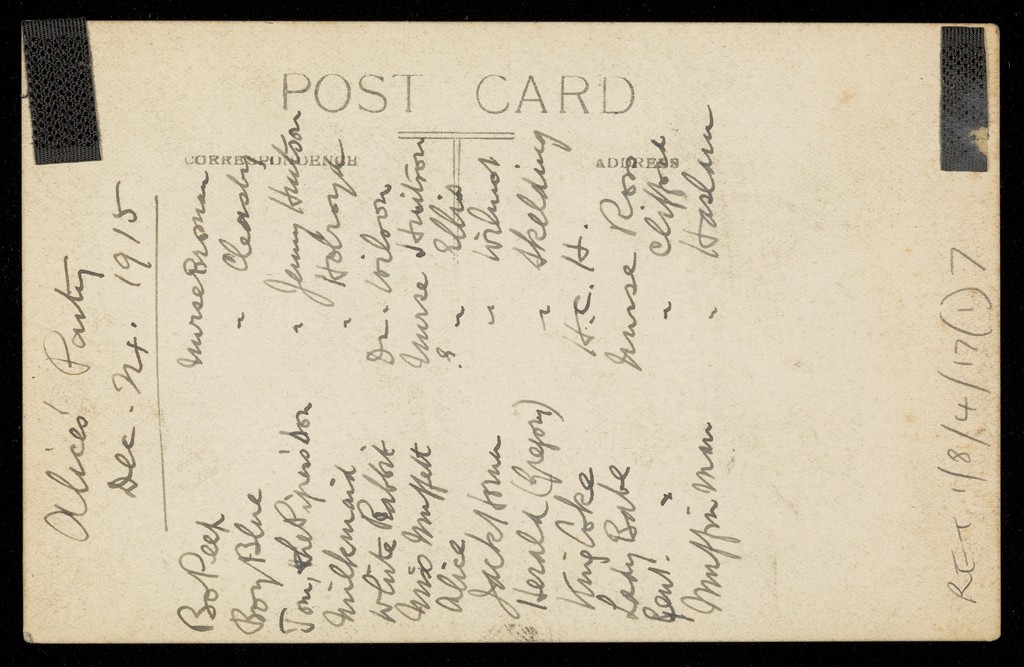 POST CARD
CORRESPONDENCE
ADDRESS
Alice's Party
Dec. 24. 1915
Bo Peep Nurse Broman
Boy Blue " Cleasby
Tom, the Piper's Son " Jenny Huitson
Milkmaid " Holroyd
White Rabbit Dr. Wilson
Miss Muffett Nurse Huitson
Alice & " Ellis
Jack Horner " Wilmot
Herald (Gregory) " Skelding
King Coke H.C.H.
Lady Babe Nurse Ross
Gent. " " Clifford
Muffin Man " Haslam
RET 1/8/4/17(1)7